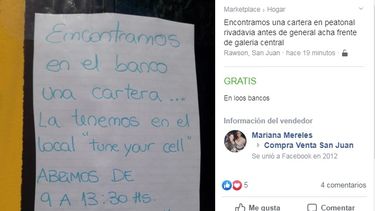 Encontramos
en el banco
una cartera...
La tenemos en el
local "tune your cell"
ABRIMOS DE
9 A 13:30 Hs.
Marketplace › Hogar
Encontramos una cartera en peatonal
rivadavia antes de general acha frente
de galería central
Rawson, San Juan · hace 19 minutos
GRATIS
En loos bancos
Información del vendedor
Mariana Mereles
Compra Venta San Juan
Se unió a Facebook en 2012
5
4 comentarios
Me gusta
Comentar